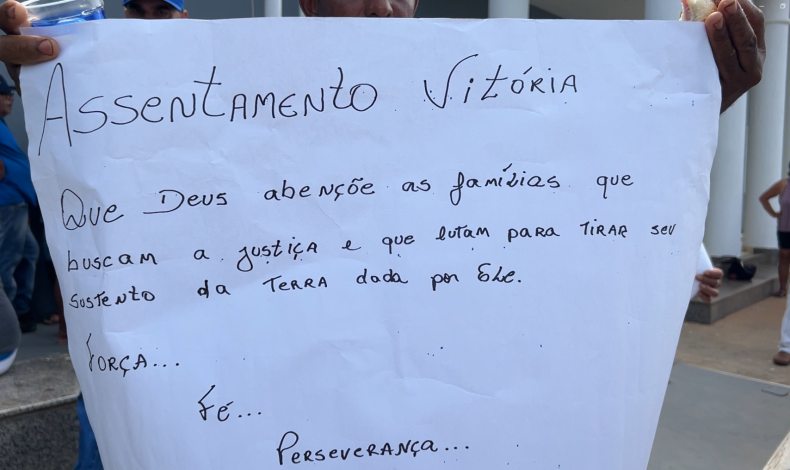 Assentamento Vitória
Que Deus abençõe as famílias que
buscam a justiça e que lutam para tirar seu
sustento da terra dada por Ele.
Força...
Fé...
Perseverança...